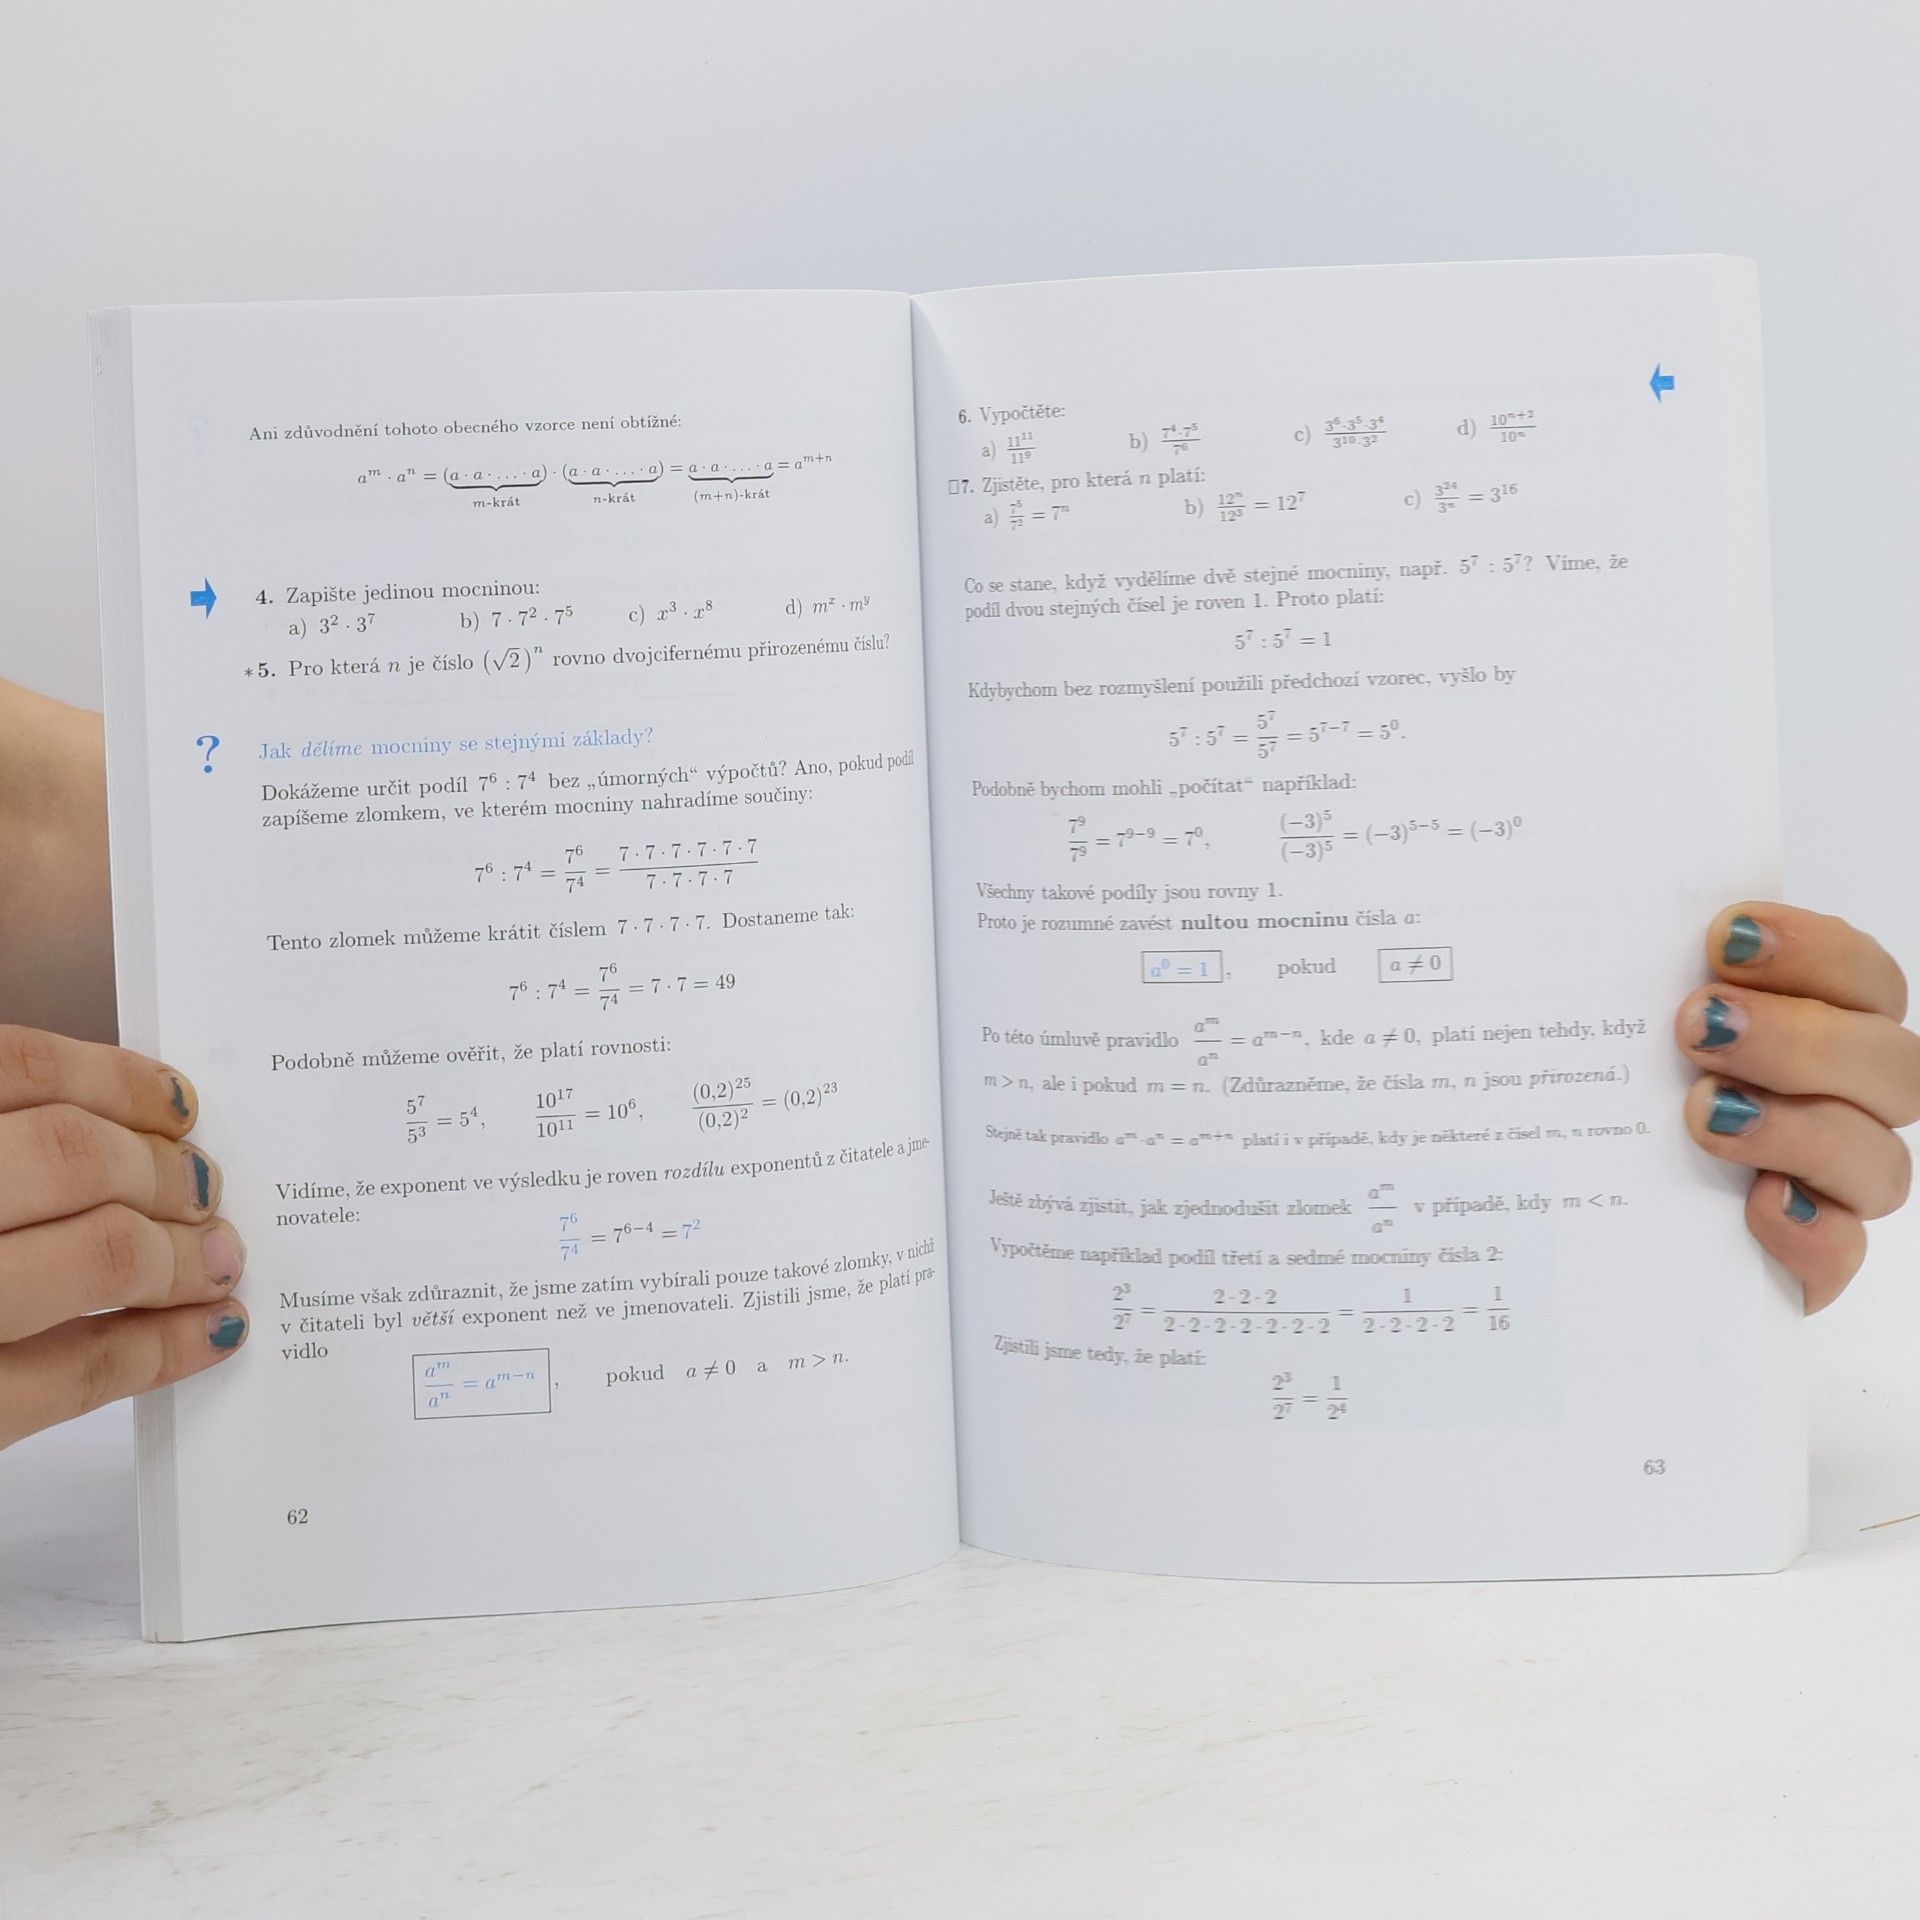 Ani zdůvodnění tohoto obecného vzorce není obtížné:
a^m · a^n = (a · a · … · a) · (a · a · … · a) = a · a · … · a = a^{m+n}
m-krát n-krát (m+n)-krát
4. Zapište jedinou mocninou:
a) 3^2 · 3^7 b) 7 · 7^2 · 7^5 c) x^3 · x^8 d) m^x · m^y
*5. Pro která n je číslo (√2)^n rovno dvojcifernému přirozenému číslu?
? Jak dělíme mocniny se stejnými základy?
Dokážeme určit podíl 7^6 : 7^4 bez „úmorných“ výpočtů? Ano, pokud podíl
zapíšeme zlomkem, ve kterém mocniny nahradíme součiny:
7^6 : 7^4 = 7^6/7^4 = (7 · 7 · 7 · 7 · 7 · 7)/(7 · 7 · 7 · 7)
Tento zlomek můžeme krátit číslem 7 · 7 · 7 · 7. Dostaneme tak:
7^6 : 7^4 = 7^6/7^4 = 7 · 7 = 49
Podobně můžeme ověřit, že platí rovnosti:
5^7/5^3 = 5^4, 10^17/10^11 = 10^6, (0,2)^25/(0,2)^2 = (0,2)^23
Vidíme, že exponent ve výsledku je roven rozdílu exponentů z čitatele a jme-
novatele:
7^6/7^4 = 7^{6−4} = 7^2
Musíme však zdůraznit, že jsme zatím vybírali pouze takové zlomky, v nichž
v čitateli byl větší exponent než ve jmenovateli. Zjistili jsme, že platí pra-
vidlo
a^m/a^n = a^{m−n}, pokud a ≠ 0 a m > n.
62
6. Vypočtěte:
a) 11^11/11^9 b) 7^4·7^5/7^6 c) 3^6·3^5·3^4/3^10·3^2 d) 10^{n+2}/10^n
□7. Zjistěte, pro která n platí:
a) 7^5/7^2 = 7^n b) 12^n/12^3 = 12^7 c) 3^24/3^n = 3^16
Co se stane, když vydělíme dvě stejné mocniny, např. 5^7 : 5^7? Víme, že
podíl dvou stejných čísel je roven 1. Proto platí:
5^7 : 5^7 = 1
Kdybychom bez rozmyšlení použili předchozí vzorec, vyšlo by
5^7 : 5^7 = 5^7/5^7 = 5^{7−7} = 5^0.
Podobně bychom mohli „počítat“ například:
7^9/7^9 = 7^{9−9} = 7^0, (−3)^5/(−3)^5 = (−3)^{5−5} = (−3)^0
Všechny takové podíly jsou rovny 1.
Proto je rozumné zavést nultou mocninu čísla a:
a^0 = 1, pokud a ≠ 0
Po této úmluvě pravidlo a^m/a^n = a^{m−n}, kde a ≠ 0, platí nejen tehdy, když
m > n, ale i pokud m = n. (Zdůrazněme, že čísla m, n jsou přirozená.)
Stejně tak pravidlo a^m · a^n = a^{m+n} platí i v případě, kdy je některé z čísel m, n rovno 0.
Ještě zbývá zjistit, jak zjednodušit zlomek a^m/a^n v případě, kdy m < n.
Vypočtěme například podíl třetí a sedmé mocniny čísla 2:
2^3/2^7 = (2 · 2 · 2)/(2 · 2 · 2 · 2 · 2 · 2 · 2) = 1/(2 · 2 · 2 · 2) = 1/16
Zjistili jsme tedy, že platí:
2^3/2^7 = 1/2^4
63